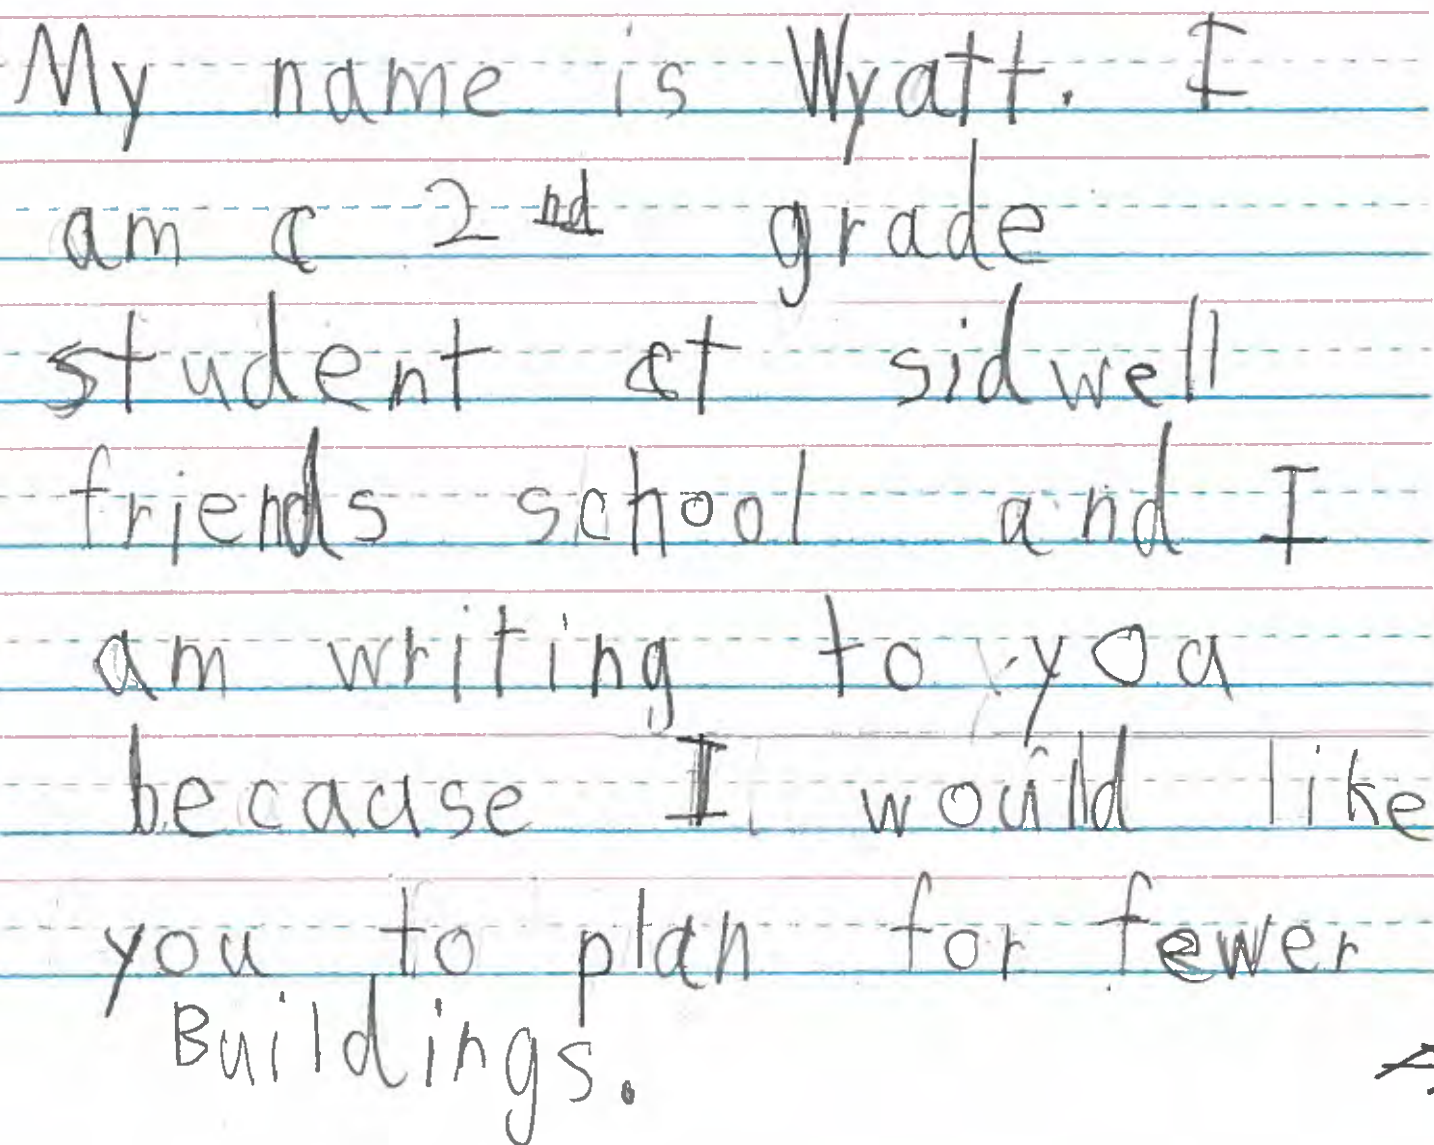 My name is Wyatt. I
am a 2nd grade
student at sidwell
friends school and I
am writing to you
because I would like
you to plan for fewer
Buildings.